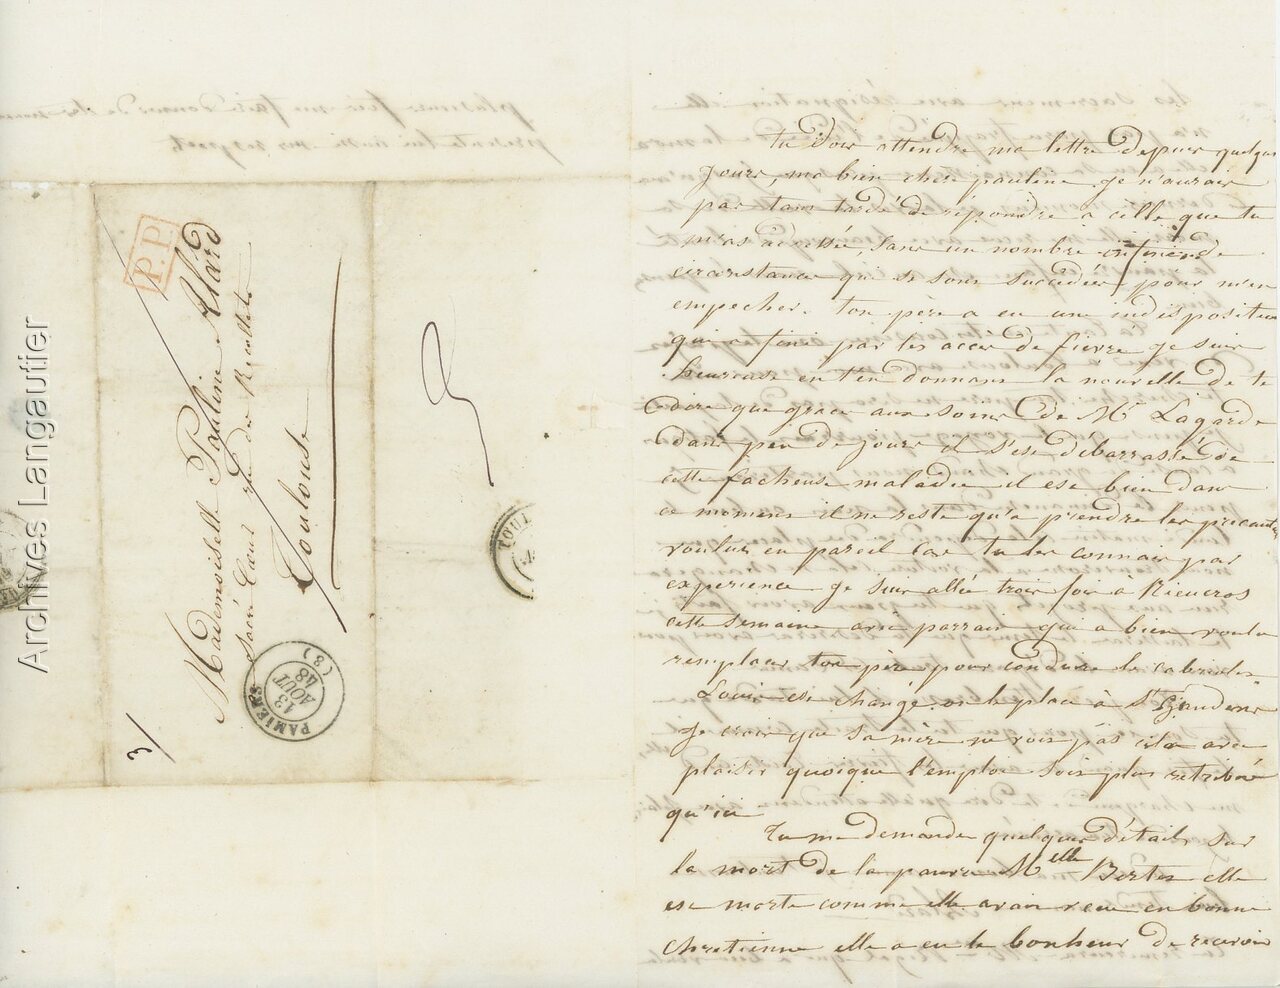 Archives Langautier
P.P.
Mademoiselle Pauline Allard
Sacré Cœur
Toulouse
PAMIERS
13
AOUT
48
(8)
TOUL
3/
tu dois attendre ma lettre depuis quelques
jours, ma bien chere pauline. je n'aurais
pas tant tardé de répondre a celle que tu
m'as adressée, sans un nombre infini de
circonstances que se sont succédées pour m'en
empecher. ton père a eu une indisposition
qui a fini par les acces de fievre je suis
heureuse en t'en donnant la nouvelle de te
dire que grace aux soins de Mr Lagarde
dans peu de jours il s'est débarrassé de
cette facheuse maladie il est bien dans
ce moment il ne reste qu'a prendre les precautions
voulues en pareil cas tu les connais par
experience je suis allée trois fois à Rieucros
cette semaine avec parrain qui a bien voulu
remplacer ton père pour conduire le cabriolet
Louis est changé. on le place à St Gaudens
je crois que sa mère ne vois pas cela avec
plaisir quoique l'emploi sois plus retribué
qu'ici
Tu me demande quelques détails sur
la mort de la pauvre Melle Bertes elle
est morte comme elle avais vecu en bonne
chretienne elle a eu le bonheur de recevoir